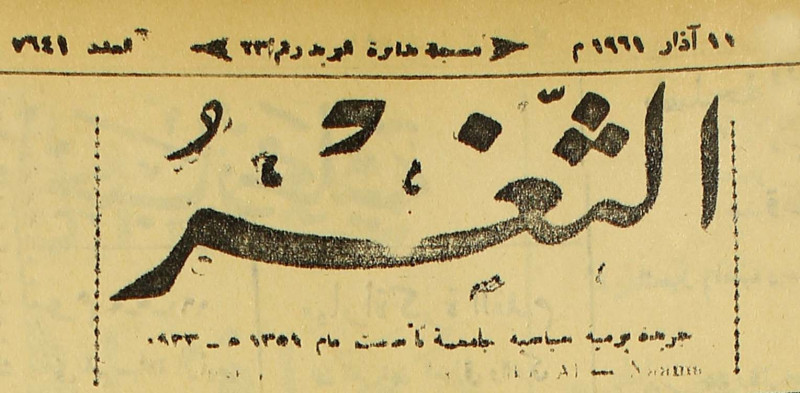 ١١ آذار ١٩٦١ م مسجلة بدائرة البريد رقم ٢٣ العدد ٧٦٤١
الثَّغْرُ
جريدة يومية سياسية جامعة تأسست عام